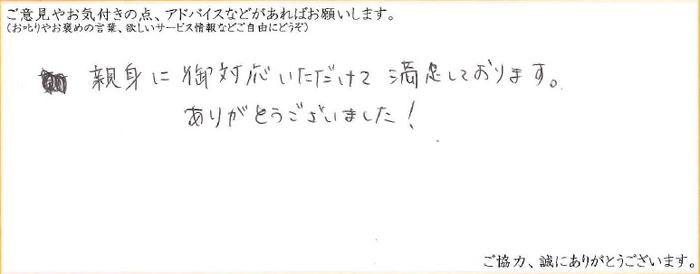 ご意見やお気付きの点、アドバイスなどがあればお願いします。
(お叱りやお褒めの言葉、欲しいサービス情報などご自由にどうぞ)
親身に御対応いただけて満足しております。
ありがとうございました!
ご協力、誠にありがとうございます。